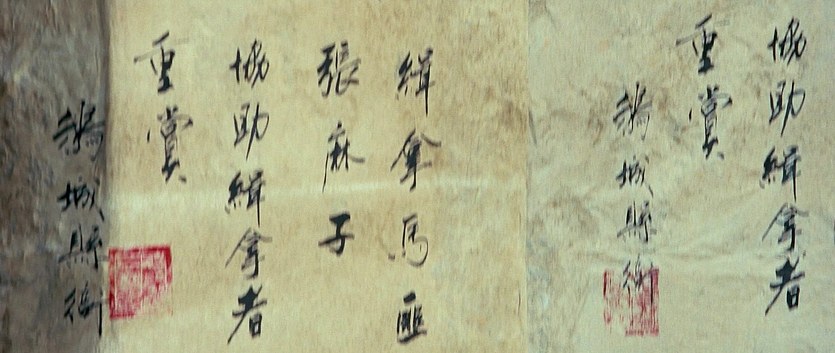 協助緝拿者
重賞
鵝城縣衙
緝拿馬匪
張麻子
協助緝拿者
重賞
鵝城縣衙